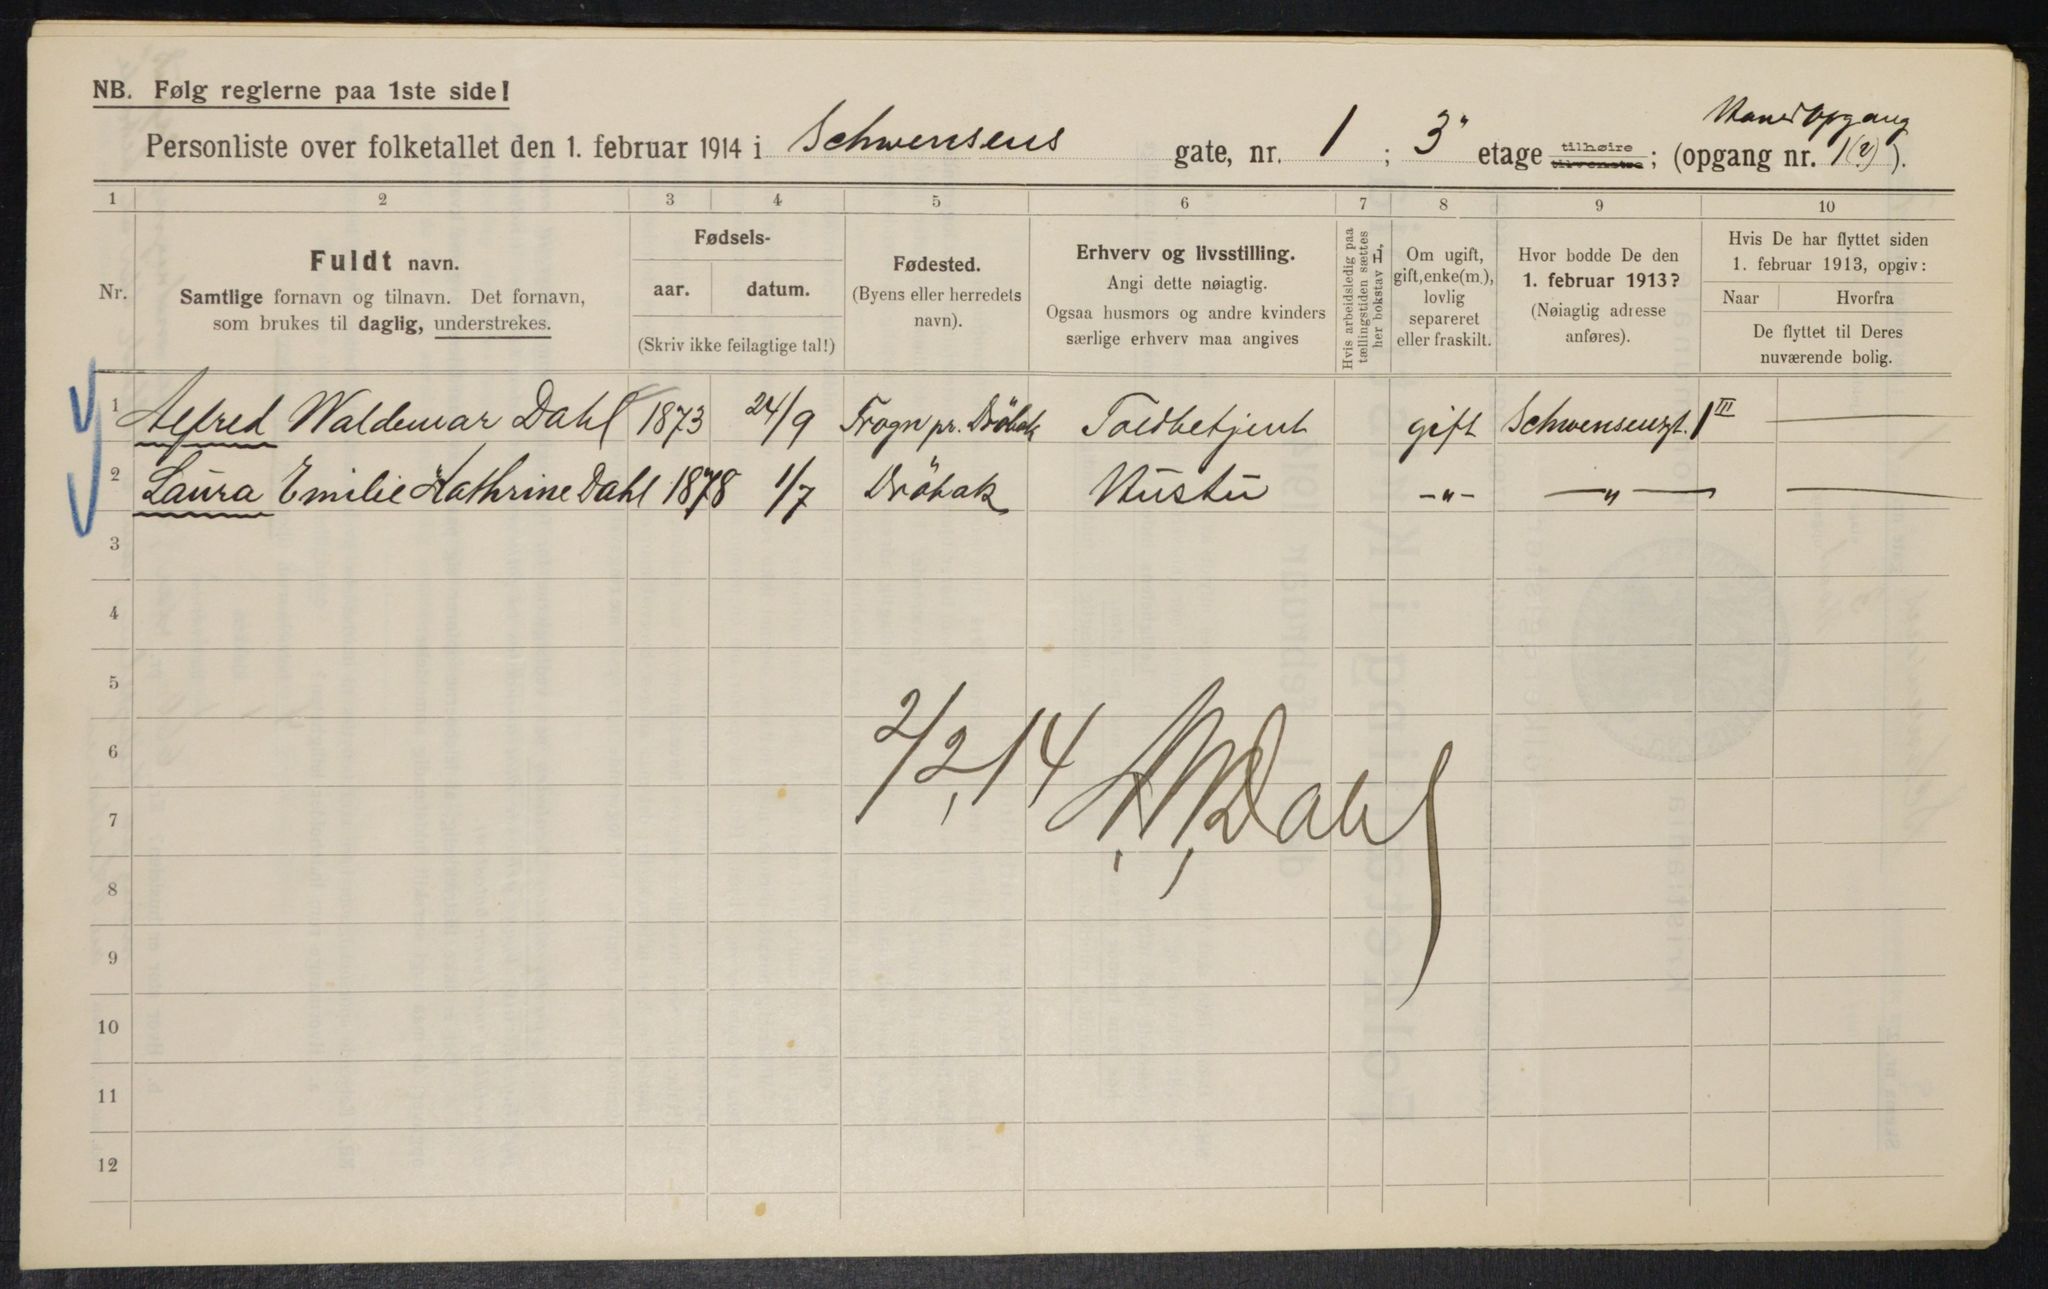 NB. Følg reglerne paa 1ste side!
Personliste over folketallet den 1. februar 1914 i Schwensens gate, nr. 1 ; 3" etage tilhøire tilvenstre; (opgang nr. 1(2)).
opgang
1 2 3 4 5 6 7 8 9 10
Nr.
Fuldt navn.
Samtlige fornavn og tilnavn. Det fornavn,
som brukes til daglig, understrekes.
Fødsels-
aar. datum.
(Skriv ikke feilagtige tal!)
Fødested.
(Byens eller herredets
navn).
Erhverv og livsstilling.
Angi dette nøiagtig.
Ogsaa husmors og andre kvinders
særlige erhverv maa angives
Hvis arbeidsledig paa
tællingstiden sættes
her bokstav L,
Om ugift,
gift, enke(m.),
lovlig
separeret
eller fraskilt.
Hvor bodde De den
1. februar 1913?
(Nøiagtig adresse
anføres).
Hvis De har flyttet siden
1. februar 1913, opgiv:
Naar Hvorfra
De flyttet til Deres
nuværende bolig.
1 Alfred Waldemar Dahl 1873 24/9 Frogn pr. Dröbak Toldbetjent gift Schwensensgt. 1 III —
2 Laura Emilie Kathrine Dahl 1878 1/7 Dröbak Hustru -"- —"— —
3
4
5
6
7
8
9
10
11
12
2/2, 14 A, W, Dahl